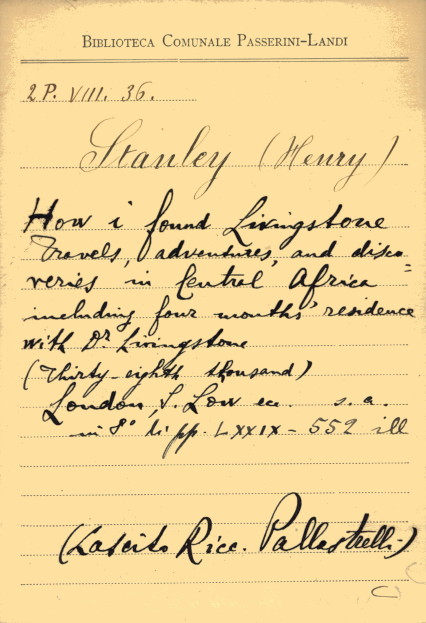 BIBLIOTECA COMUNALE PASSERINI-LANDI
2 P. VIII. 36.
Stanley (Henry)
How i found Livingstone
Travels, adventures, and disco=
veries in Central Africa
including four months' residence
with Dr Livingstone
(Thirty-eighth thousand)
London, S. Low ec. s. a.
in 8° di pp. LXXIX - 552 ill
(Lascito Ricc. Pallastrelli)